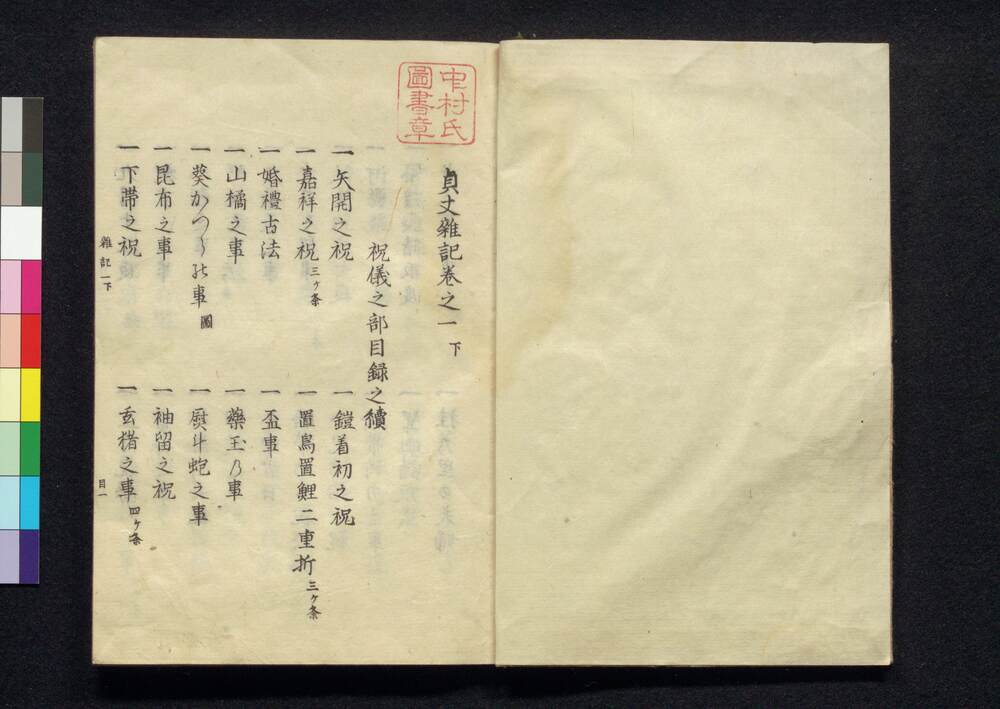 中村氏
圖書章
貞丈雜記巻之一 下
祝儀之部目録之續
一 矢開之祝
一 鎧着初之祝
一 嘉祥之祝 三ヶ条
一 置鳥置鯉二重折 三ヶ条
一 婚禮古法
一 盃事
一 山橘之事
一 藥玉乃事
一 葵かつら之事 圖
一 熨斗蚫之事
一 昆布之事
一 袖留之祝
一 下帯之祝
一 玄猪之事 四ヶ条
雜記一下
目一